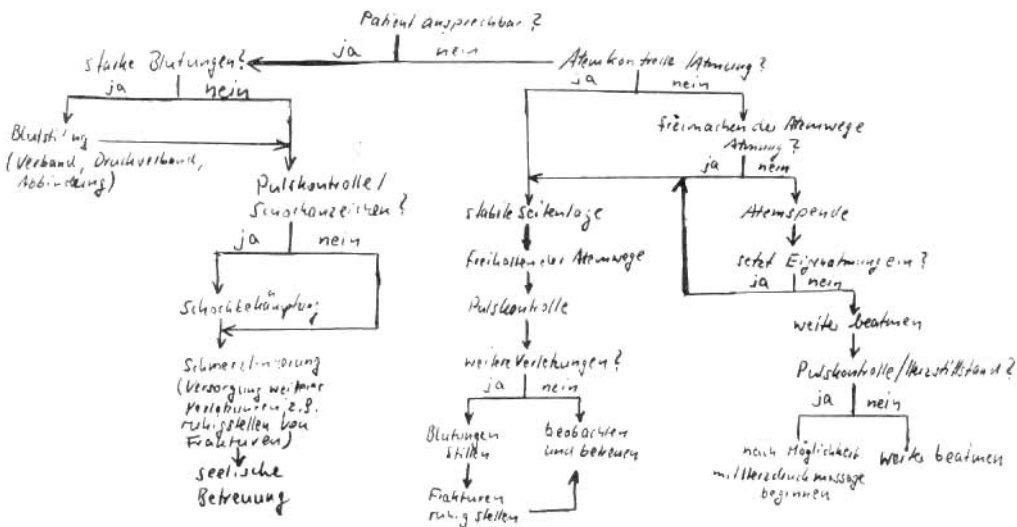 Patient ansprechbar?
ja nein
starke Blutungen?
ja nein
Blutstillung
(Verband, Druckverband,
Abbindung)
Pulskontrolle/
Schockanzeichen?
ja nein
Schockbekämpfung
Schmerzlinderung
(Versorgung weiterer
Verletzungen, z.B.
ruhigstellen von
Frakturen)
seelische
Betreuung
Atemkontrolle/Atmung?
ja nein
freimachen der Atemwege
Atmung?
ja nein
stabile Seitenlage
Freihalten der Atemwege
Pulskontrolle
weitere Verletzungen?
ja nein
Blutungen
stillen
Frakturen
ruhig stellen
beobachten
und betreuen
Atemspende
setzt Eigenatmung ein?
ja nein
weiter beatmen
Pulskontrolle/Herzstillstand?
ja nein
nach Möglichkeit
mit Herzdruckmassage
beginnen
weiter beatmen